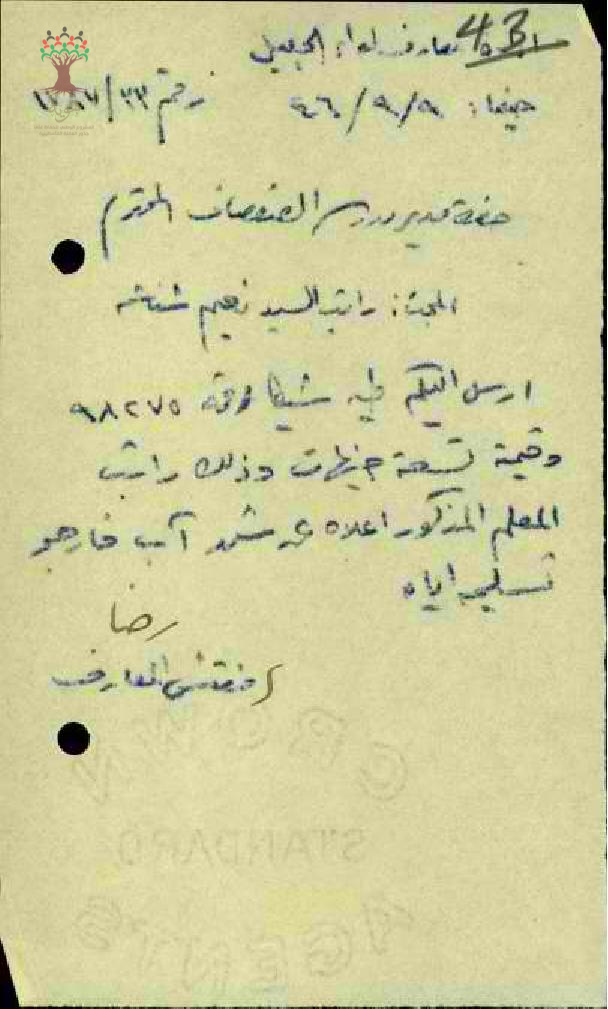 43
ادارة معارف لواء الجليل
حيفا: ٩/٩/٤٦ رقم ١٢٨٧/٣٣
حضرة مدير مدرسة الصفصاف المحترم
البحث: راتب السيد نعيم
ارسل اليكم طيه شيكا رقمه ٩٨٢٧٥
وقيمة تسعة جنيهات وذلك راتب
المعلم المذكور اعلاه عن شهر آب فارجو
تسليمه اياه
رضا
مفتش المعارف
CROWN
STANDARD
AGENTS